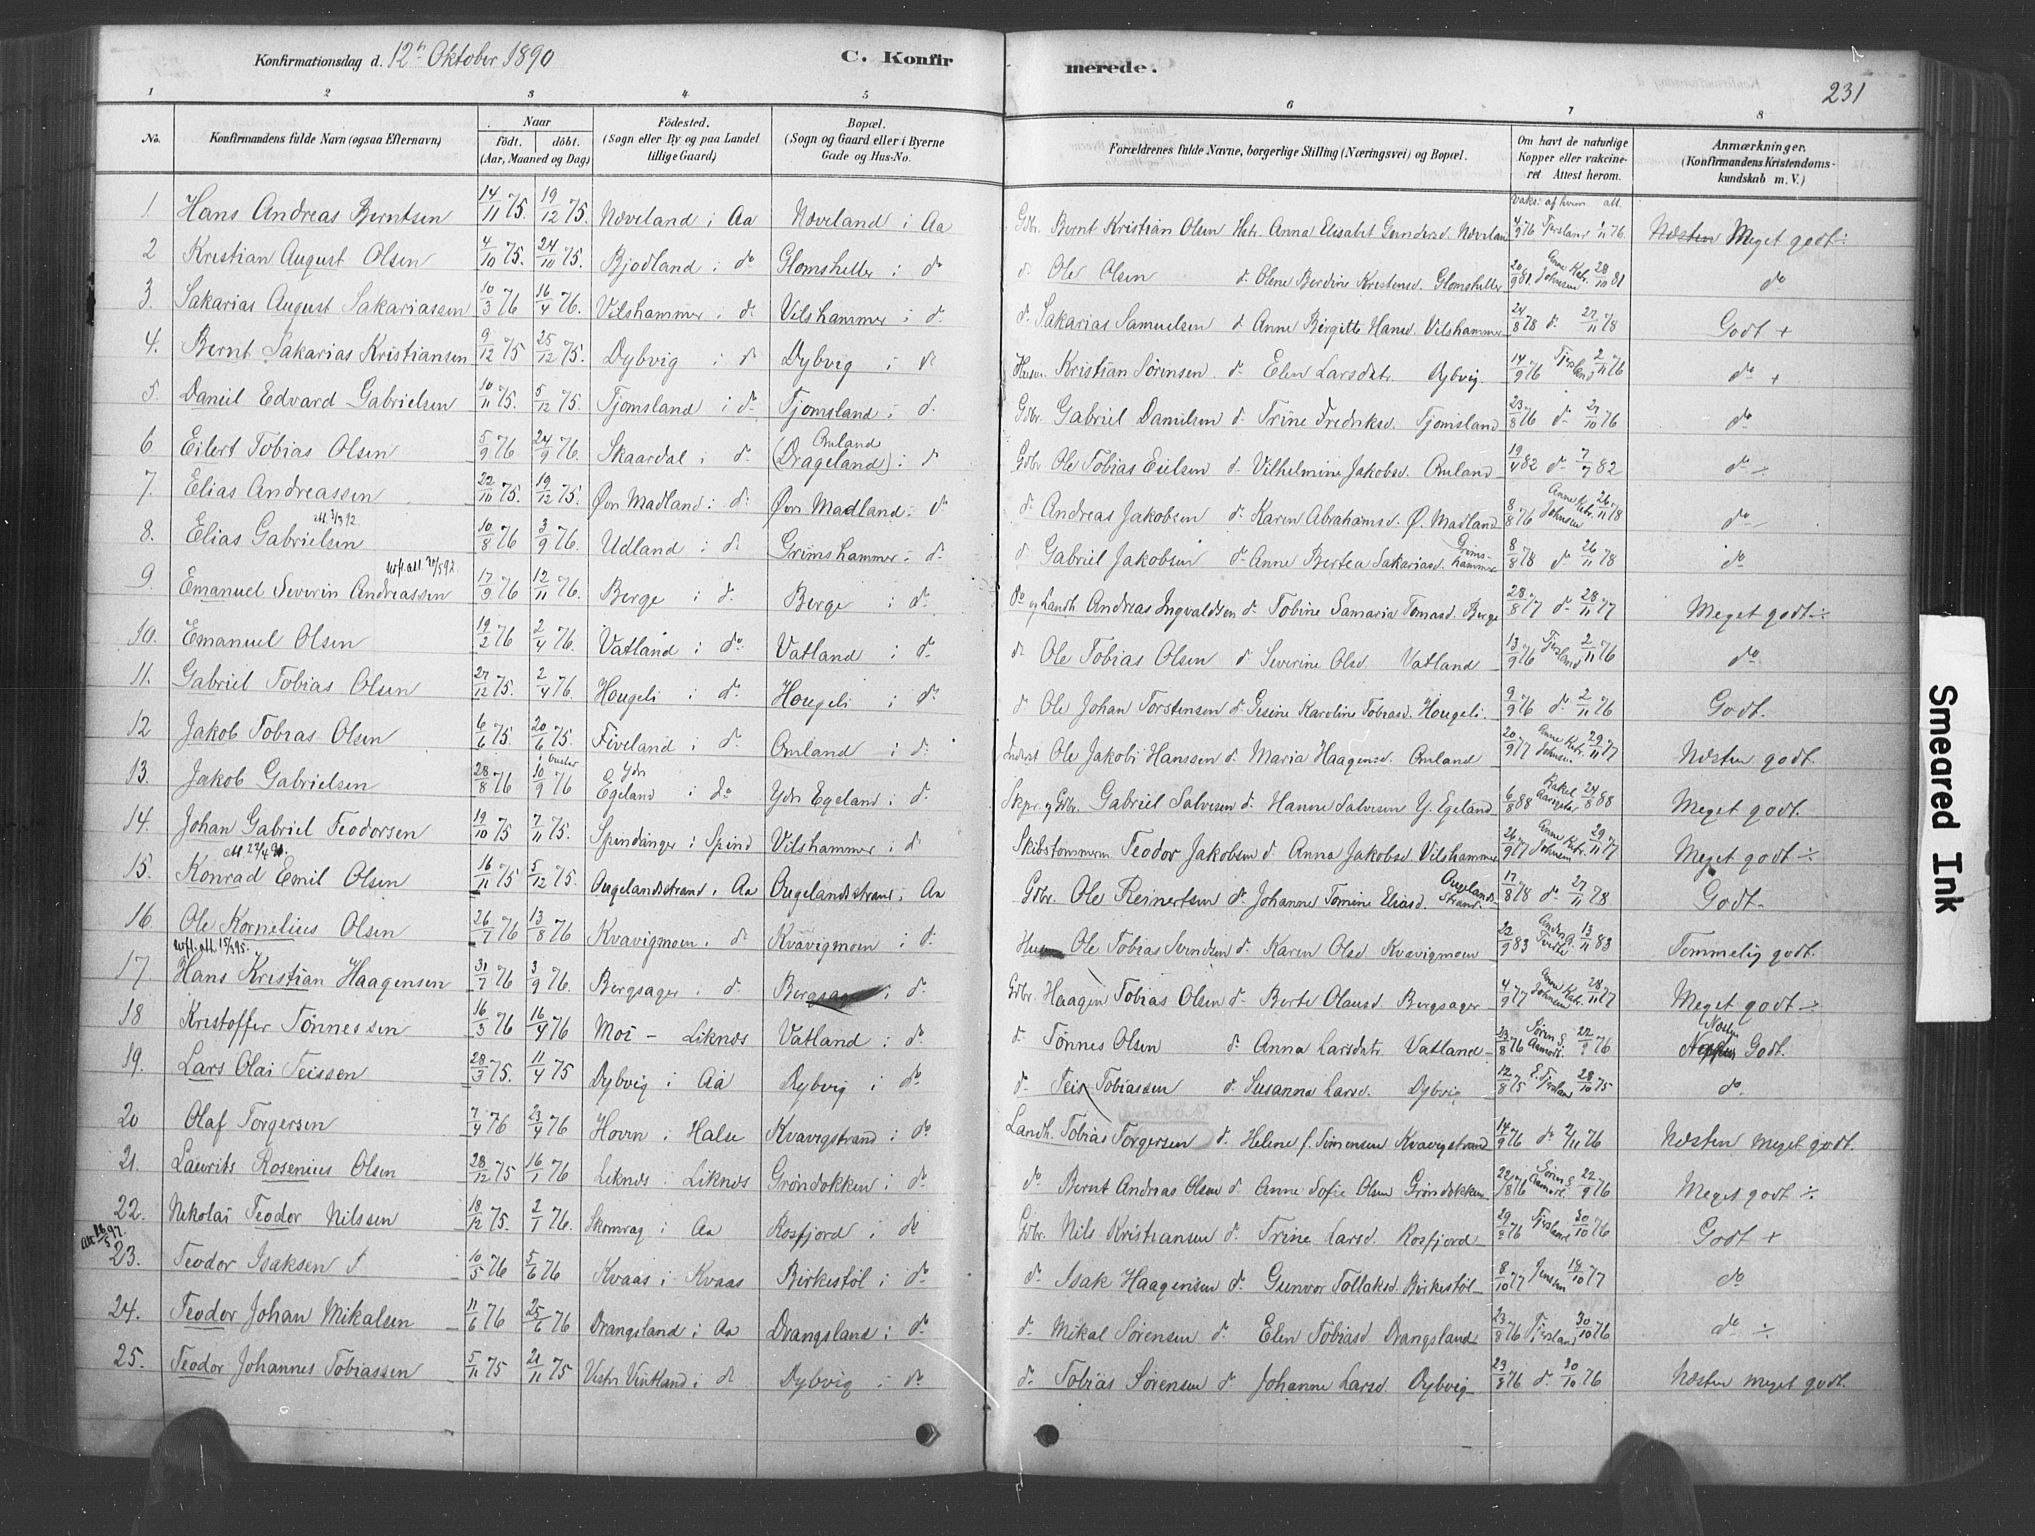 Konfirmationsdag d. 12te Oktober 1890 C. Konfirmerede. 231
1 2 3 4 5 6 7 8
No. Konfirmandens fulde Navn (ogsaa Efternavn) Naar födt. döbt. (Aar, Maaned og Dag) Födested. (Sogn eller By og paa Landet tillige Gaard) Bopæl. (Sogn og Gaard eller i Byerne Gade og Hus-No. Forældrenes fulde Navne, borgerlige Stilling (Næringsvei) og Bopæl. Om havt de naturlige Kopper eller vakcineret Attest herom. Anmærkninger. (Konfirmandens Kristendomskundskab m. V.)
Vaks. af hvem att.
1. Hans Andreas Berntsen 14/11 75. 19/12 75. Næveland i Aa Næveland i Aa Gdbr. Bernt Kristian Olsen Hstr. Anna Elisabet Gundersd. Næveland 4/9 76 Tjersland 2/11 76. Næsten Meget godt ÷
2 Kristian August Olsen 4/10 75. 24/10 75. Bjodland i do Glomsheller i do d. Ole Olsen d. Olene Berdine Kristensd. Glomsheller 20/9 81. Anne Katr. Johnsen 28/10 81 do
3. Sakarias August Sakariassen 10/3 76 16/4 76. Vilshammer i do Vilshammer i d. d. Sakarias Samuelsen d. Anne Birgitte Hansd. Vilshammer 24/8 78 d. 27/11 78 Godt +
4. Bernt Sakarias Kristiansen 9/12 75 25/12 75. Dybvig i d Dybvig i d Husm. Kristian Sørensen d. Elen Larsdtr. Dybvig. 14/9 76 Tjersland 2/11 76 do +
5. Daniel Edvard Gabrielsen 10/11 75. 5/12 75. Tjomsland i d. Tjomsland i d. Gdbr. Gabriel Danielsen d. Trine Fredriksd. Tjomsland 23/8 76 d. 27/10 76 do
6 Eilert Tobias Olsen 5/9 76 24/9 76. Skaardal i d. Omland (Drageland) i d Gdbr Ole Tobias Eielsen d. Vilhelmine Jakobsd. Omland 19/4 82 d. 7/7 82 do ÷
7. Elias Andreassen 22/10 75. 19/12 75. Øvr Madland i d. Øvr Madland i d d. Andreas Jakobsen d. Karen Abrahamsd. Ø. Madland 8/8 76 Anne Katr. Johnsen 26/11 78 do
8. Elias Gabrielsen att 3/3 92. 10/8 76 3/9 76. Udland i d. Grimshammer i d. d Gabriel Jakobsen d. Anne Bertea Sakariasd. Grimshammer 8/8 78 d. 26/11 78 do
9 Emanuel Severin Andreassen 17/9 76 12/11 76. Berge i d. Berge i d. do og Landh. Andreas Ingvaldsen d. Tobine Samaria Tomasd. Berge 28/8 77 d. 28/11 77 Meget godt ÷
10. Emanuel Olsen 19/2 76 2/4 76. Vatland i do Vatland i d. d Ole Tobias Olsen d Severine Olsd Vatland 13/9 76 Tjersland 2/11 76 do
11. Gabriel Tobias Olsen 27/12 75. 2/4 76. Hougeli i d. Hougeli i d. d Ole Johan Torstensen d. Gesine Karoline Tobiasd. Hougeli. 9/9 76 d. 2/11 76 Godt.
12 Jakob Tobias Olsen 6/6 75. 20/6 75. Fiveland i d. Omland i d. Inderst Ole Jakob Hanssen d. Maria Haagensd. Omland 20/9 77 Anne Katr. Johnsen 29/11 77 Næsten godt.
13. Jakob Gabrielsen 28/8 76 10/9 76 Ydr Egeland i do Ydr Egeland i d. Skpr. og Gdbr. Gabriel Salvesen d. Hanne Salvesen Y. Egeland 6/8 88 24/8 88 Meget godt.
14. Johan Gabriel Teodorsen 19/10 75 7/11 75. Spendanger i Spind Vilshammer i d Skibstømmerm Teodor Jakobsen d. Anna Jakobsd Vilshammer 26/9 77 Anne Katr. Johnsen 29/11 77 Meget godt ÷
15. Konrad Emil Olsen 16/11 75 5/12 75. Ougelandsstrand i Aa Ougelandsstrand i Aa Gdbr. Ole Reinertsen d. Johanne Tomine Eliasd. Ougelandsstrand. 17/8 78 d. 27/11 78 Godt
16. Ole Kornelius Olsen 26/7 76 13/8 76 Kvavigmoen i d Kvavigmoen i d. Husm Ole Tobias Svendsen d. Karen Olsd Kvavigmoen 22/9 83 13/11 83 Temmelig godt.
17. Hans Kristian Haagensen 31/7 76 3/9 76. Bergsager i d. Bergsager i d. Gdbr. Haagen Tobias Olsen d. Berte Olausd. Bergsager 4/9 77 Anne Katr. Johnsen 28/11 77 Meget godt ÷
18 Kristoffer Tønnessen 16/3 76 16/4 76 Moi - Liknes Vatland i d. d. Tønnes Olsen d. Anna Larsdtr Vatland 23/8 76 Søren S. 22/9 76 Næsten Godt.
19. Lars Olai Teissen 28/3 75. 11/4 75 Dybvig i Aa Dybvig i d. d. Teis Tobiassen d. Susanna Larsd. Dybvig 12/8 75 E. Tjersland 28/10 75 do.
20 Olaf Torgersen 7/4 76 23/4 76 Hovn i Halse Kvavigstrand i do Landh. Tobias Torgersen d. Helene f. Simensen Kvavigstrand 14/9 76 d. 2/11 76 Næsten meget godt.
21. Laurits Rosenius Olsen 28/12 75 16/1 76 Liknes i Liknes Grøndokken i d. do Bernt Andreas Olsen d. Anne Sofie Olsen Grøndokken 22/8 76 Søren S. 22/9 76 Meget godt ÷
22. Nikolai Teodor Nilssen 18/12 75. 2/1 76. Skomrag i Aa Rosfjord i do Gdbr. Nils Kristiansen d. Trine Larsd. Rosfjord 29/9 76 Tjersland 30/10 76 Godt +
23. Teodor Isaksen 10/5 76 5/6 76 Kvaas i Kvaas Birkestøl i do d. Isak Haagensen d. Gunvor Tollaksd. Birkestøl 8/10 77 Jensen 18/10 77 do
24. Teodor Johan Mikalsen 11/6 76 25/6 76 Drangsland i Aa Drangsland i d. d. Mikal Sørensen d. Elen Tobiasd Drangsland 23/8 76 Tjersland 30/10 76 do ÷
25. Teodor Johannes Tobiassen 5/11 75 21/11 75 Vestr Vintland i d Dybvig i do d. Tobias Sørensen d. Johanne Larsd Dybvig 23/8 76 d. 30/10 76 Næsten meget godt.
Smeared Ink